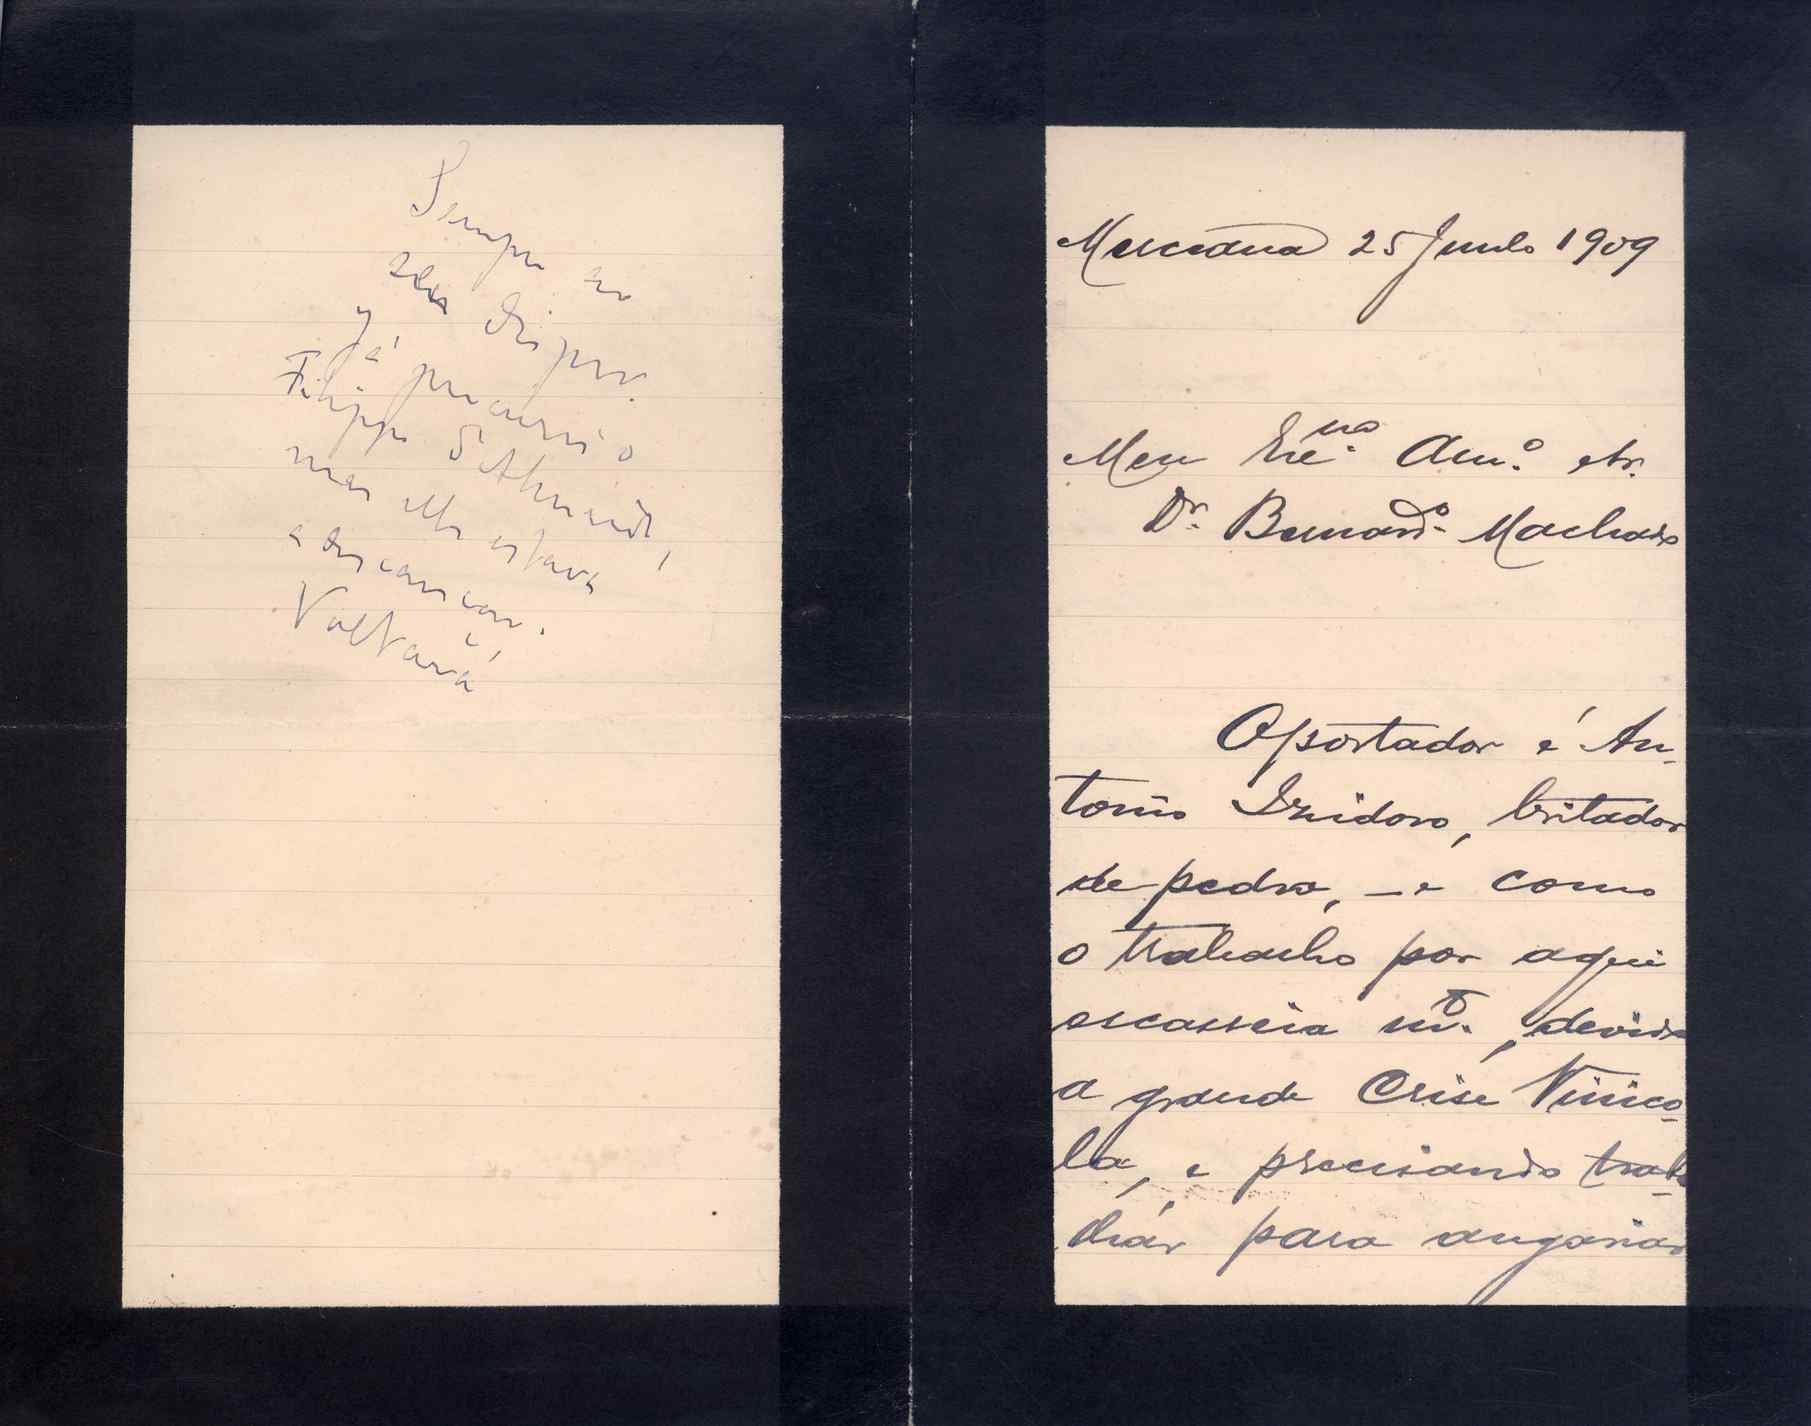 Sempre ao
seu dispor.
Já procurei o
Filippe
mas elle estava
a descançar.
Voltará
Merceana 25 Junho 1909
Meu Exᵐᵒ. Amº. etc.
Dr. Bernardº. Machado
O portador é An-
tonio Izidoro, britador
de pedra, – e como
o trabalho por aqui
escasseia mᵗº., devido
a grande Crise Vinico-
la, e precisando traba-
lhár para angariar